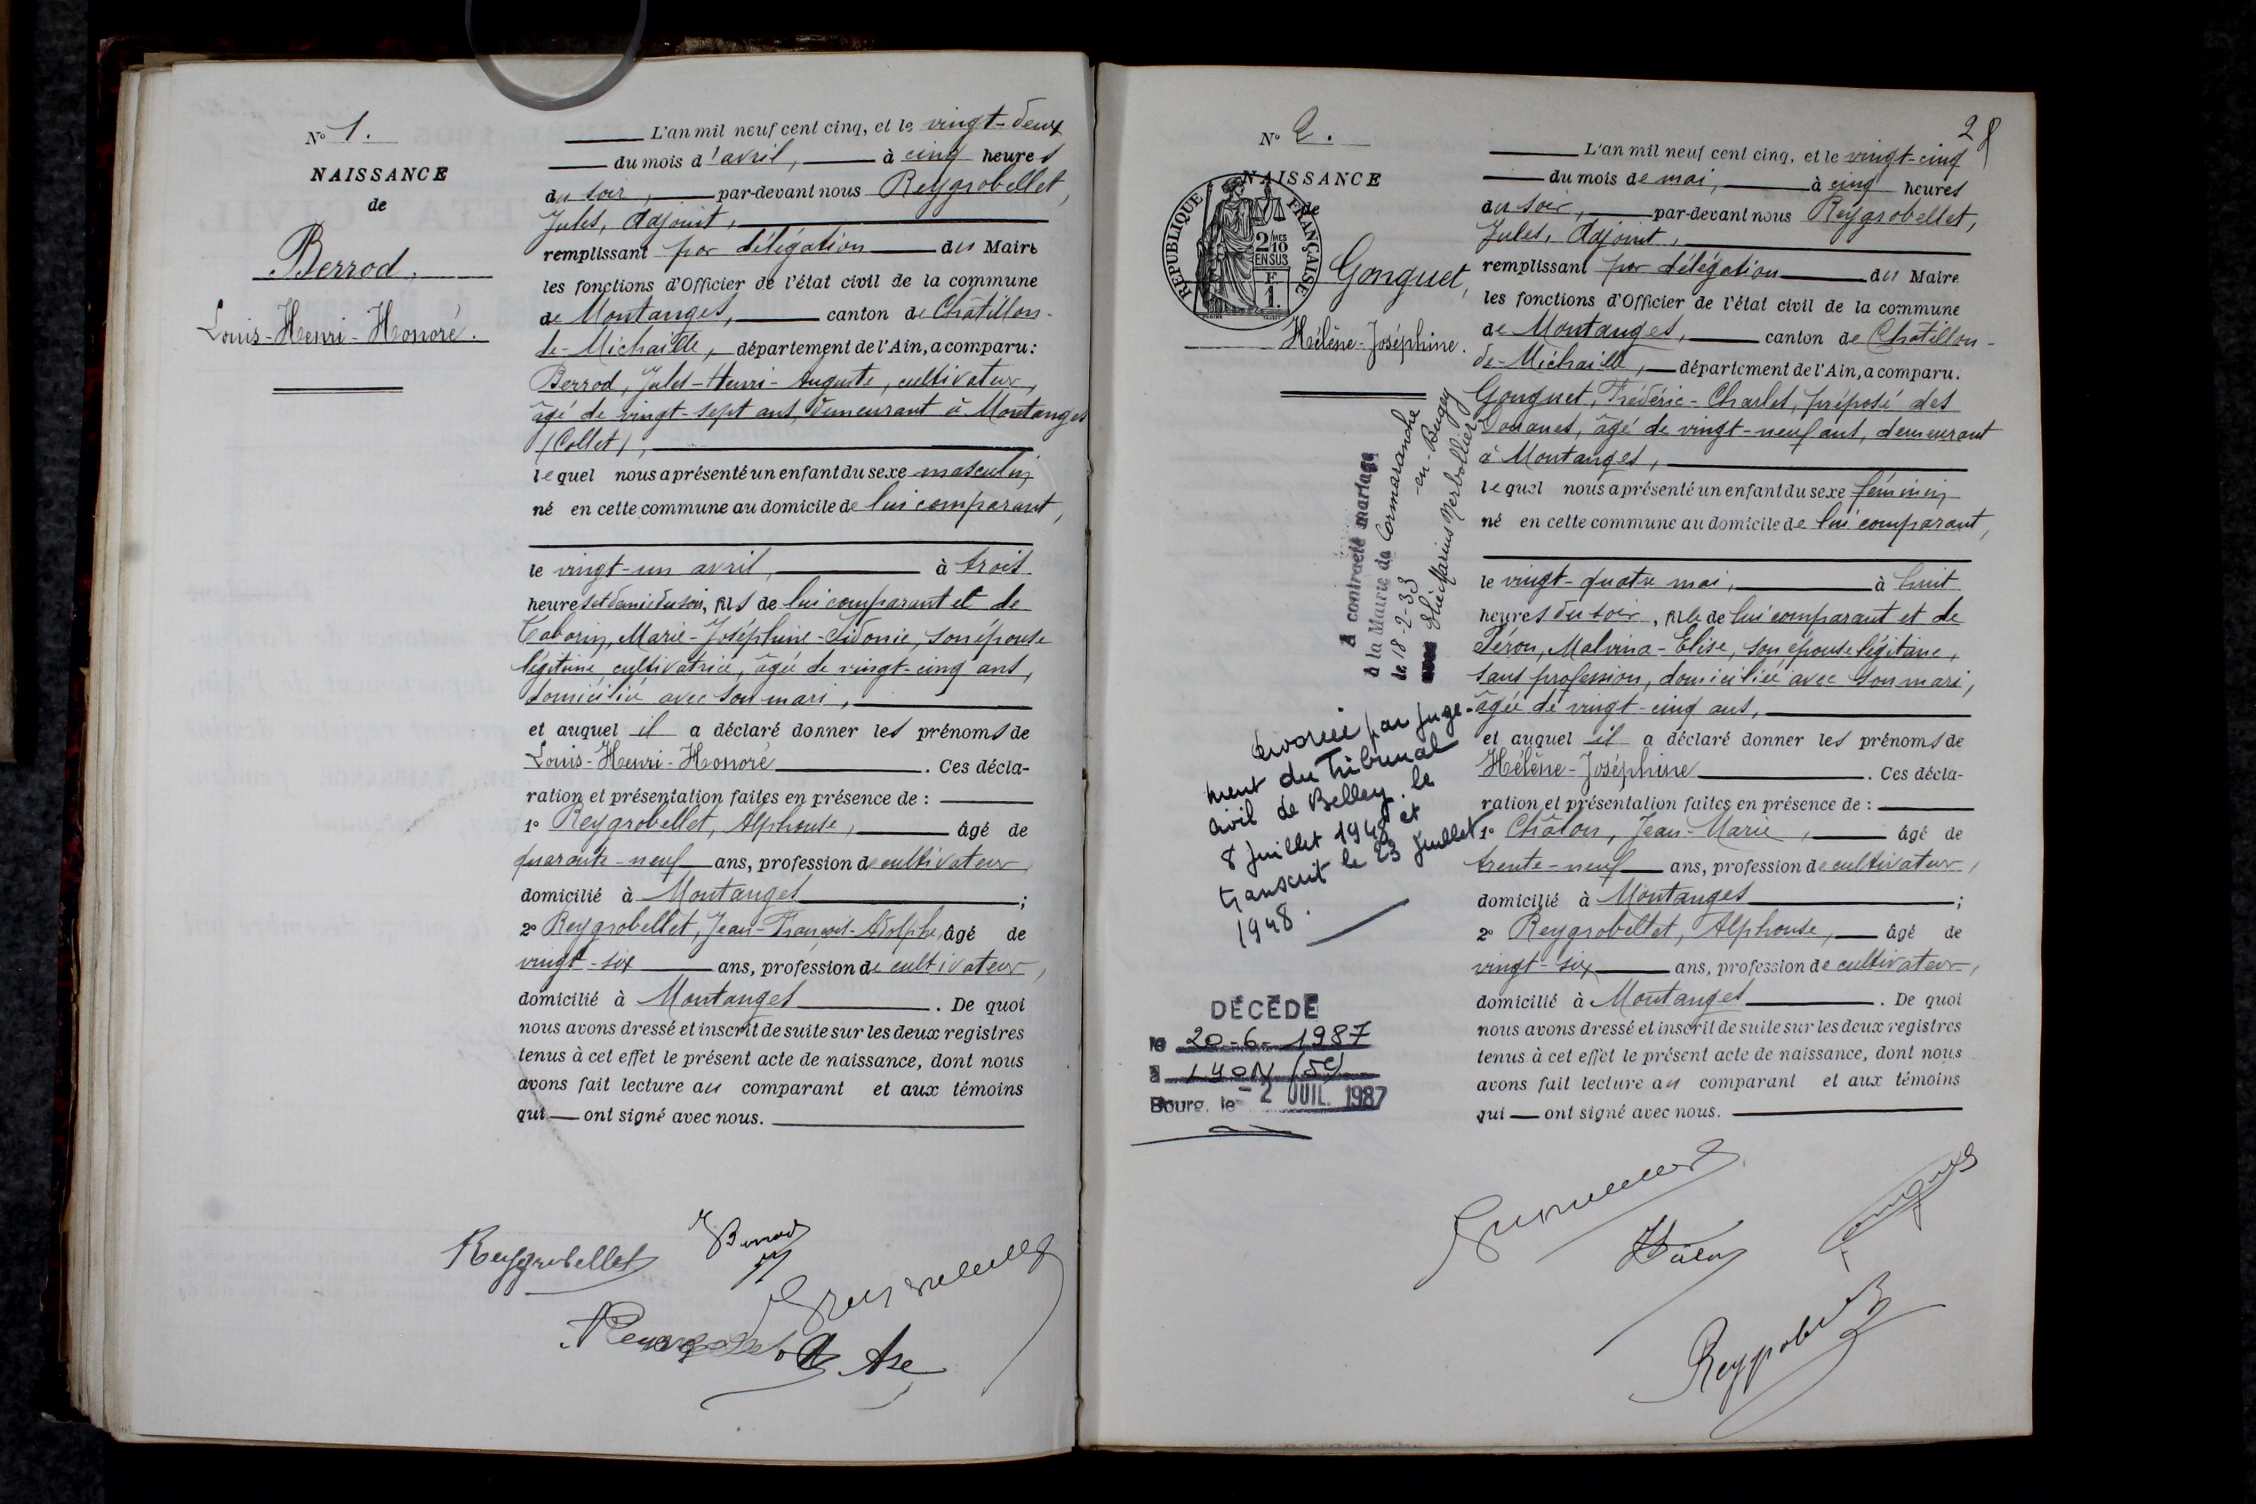 N° 1.
NAISSANCE
de
Berrod,
Louis-Henri-Honoré.
L'an mil neuf cent cinq, et le vingt-deux
du mois d'avril, à cinq heures
du soir, par-devant nous Reygrobellet,
Jules, adjoint,
remplissant par délégation du Maire
les fonctions d'Officier de l'état civil de la commune
de Montanges, canton de Châtillon-
de-Michaille, département de l'Ain, a comparu:
Berrod, Jules-Henri-Auguste, cultivateur,
âgé de vingt-sept ans, demeurant à Montanges
(Collet),
lequel nous a présenté un enfant du sexe masculin,
né en cette commune au domicile de lui comparant,
le vingt-un avril, à trois
heures et demie du soir, fils de lui comparant et de
Taborin, Marie-Joséphine-Sidonie, son épouse
légitime, cultivatrice, âgée de vingt-cinq ans,
domiciliée avec son mari,
et auquel il a déclaré donner les prénoms de
Louis-Henri-Honoré. Ces décla-
ration et présentation faites en présence de :
1° Reygrobellet, Alphonse, âgé de
quarante-neuf ans, profession de cultivateur,
domicilié à Montanges ;
2° Reygrobellet, Jean-François-Adolphe, âgé de
vingt-six ans, profession de cultivateur,
domicilié à Montanges. De quoi
nous avons dressé et inscrit de suite sur les deux registres
tenus à cet effet le présent acte de naissance, dont nous
avons fait lecture au comparant et aux témoins
qui ont signé avec nous.
Reygrobellet
J Berrod
28
N° 2.
NAISSANCE
de
RÉPUBLIQUE FRANÇAISE
2/10 MES
EN SUS
F
1.
Gonguet,
Hélène-Joséphine.
A contracté mariage
à la Mairie de Cormaranche
-en-Bugey
le 18-2-33
avec Elie Marius Nerbollier
Divorcée par juge-
ment du Tribunal
civil de Belley, le
8 juillet 1948 et
transcrit le 23 juillet
1948.
DÉCÉDÉ
le 20-6-1987
à LYON (5e)
Bourg, le - 2 JUIL. 1987
L'an mil neuf cent cinq, et le vingt-cinq
du mois de mai, à cinq heures
du soir, par-devant nous Reygrobellet,
Jules, adjoint,
remplissant par délégation du Maire
les fonctions d'Officier de l'état civil de la commune
de Montanges, canton de Châtillon-
de-Michaille, département de l'Ain, a comparu.
Gonguet, Frédéric-Charles, préposé des
Douanes, âgé de vingt-neuf ans, demeurant
à Montanges,
lequel nous a présenté un enfant du sexe féminin,
né en cette commune au domicile de lui comparant,
le vingt-quatre mai, à huit
heures du soir, fille de lui comparant et de
Péron, Malvina-Elise, son épouse légitime,
sans profession, domiciliée avec son mari,
âgée de vingt-cinq ans,
et auquel il a déclaré donner les prénoms de
Hélène-Joséphine. Ces décla-
ration et présentation faites en présence de :
1° Châlon, Jean-Marie, âgé de
trente-neuf ans, profession de cultivateur,
domicilié à Montanges ;
2° Reygrobellet, Alphonse, âgé de
vingt-six ans, profession de cultivateur,
domicilié à Montanges. De quoi
nous avons dressé et inscrit de suite sur les deux registres
tenus à cet effet le présent acte de naissance, dont nous
avons fait lecture au comparant et aux témoins
qui ont signé avec nous.